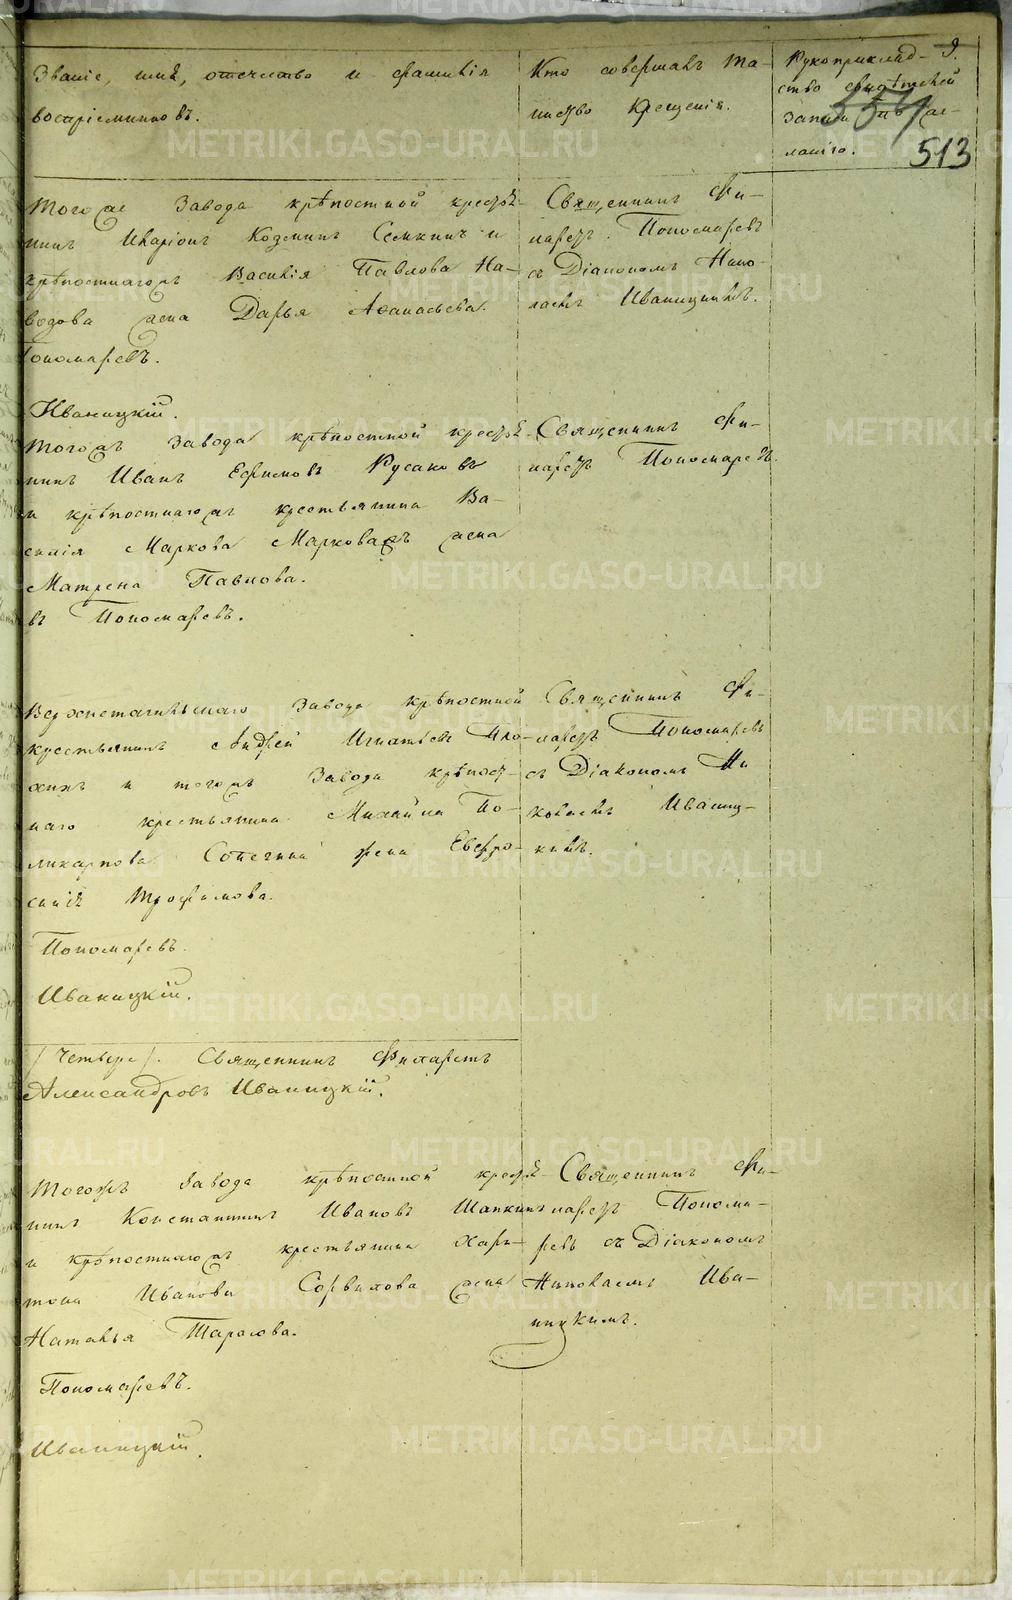 Званіе, имя, отечество и фамилія
воспріемниковъ.
Кто совершалъ та-
инство крещенія.
Рукоприклад-
ство свидѣтелей
записи по же-
ланію.
9.
557
513
Тогоже завода крѣпостной крестья-
нинъ Иларіонъ Козминъ Семкинъ и
крѣпостнагожъ Василія Павлова На-
водова жена Дарья Афанасьева.
Пономаревъ.
Иваницкій.
Священникъ Фи-
ларетъ Пономаревъ
съ Діакономъ Нико-
лаемъ Иваницкимъ.
Тогожъ завода крѣпостной крестья-
нинъ Иванъ Ефимовъ Русаковъ
и крѣпостнагожъ крестьянина Ва-
силія Маркова жена
Матрена Павлова.
Пономаревъ.
Священникъ Фи-
ларетъ Пономаревъ.
Верхнетагильскаго завода крѣпостной
крестьянинъ Андрей Игнатьевъ Пло-
хихъ и тогожъ завода крѣпост-
наго крестьянина Михаила По-
ликарпова жена Евфро-
синія Трофимова.
Пономаревъ.
Иваницкій.
Священникъ Фи-
ларетъ Пономаревъ
съ Діакономъ Ни-
колаемъ Иваниц-
кимъ.
/Четыре/. Священникъ Филаретъ
Александровъ Иваницкій.
Тогожъ завода крѣпостной крестья-
нинъ Константинъ Ивановъ Шапкинъ
и крѣпостнагожъ крестьянина Хари-
тона Иванова жена
Наталья Тарасова.
Пономаревъ.
Иваницкій.
Священникъ Фи-
ларетъ Понома-
ревъ съ Діакономъ
Николаемъ Ива-
ницкимъ.
METRIKI.GASO-URAL.RU